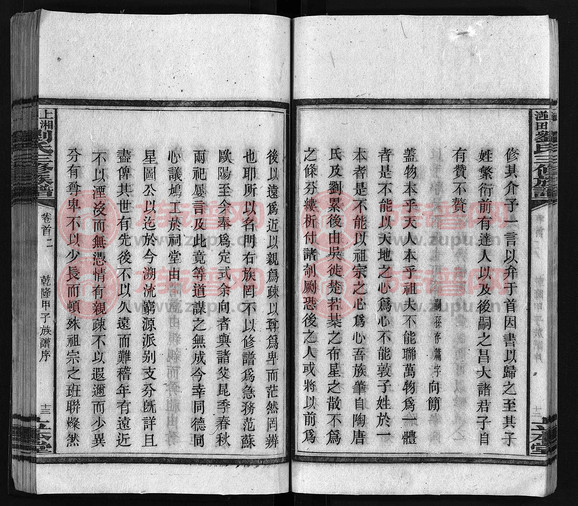 修其介予一言以弁于首因書以歸之至其子
姓繁衍前有達人以及後嗣之昌大諸君子自
有贊不贅
向簡
蓋物本乎天人本乎祖夫不能聯萬物為一體
者是不能以天地之心為心不能敦子姓於一
者是不能以祖宗之心為心吾族肇自陶唐
氏及劉累後由
之條分縷析付諸剞劂恐後之人或將以前為
後以遠為近以親為疎以尊為卑而茫然罔辨
也耶所以名門右族罔不以修譜為急務范蘇
歐陽至今奉為定式余向者與諸父昆季春秋
兩祀懸言及此竟等道謀之無成今幸同德同
心議鳩工於祠堂由
星圖公以迄於今溯流窮源派别支分既詳且
盡俾其世有先後不以久遠而難稽年有遠近
不以湮沒而無憑情有親疎不以遐邇而少異
分有尊卑不以少長而頓殊祖宗之班聯燦然
上湘劉氏三修族譜
卷首二
乾隆甲子族譜序
十三